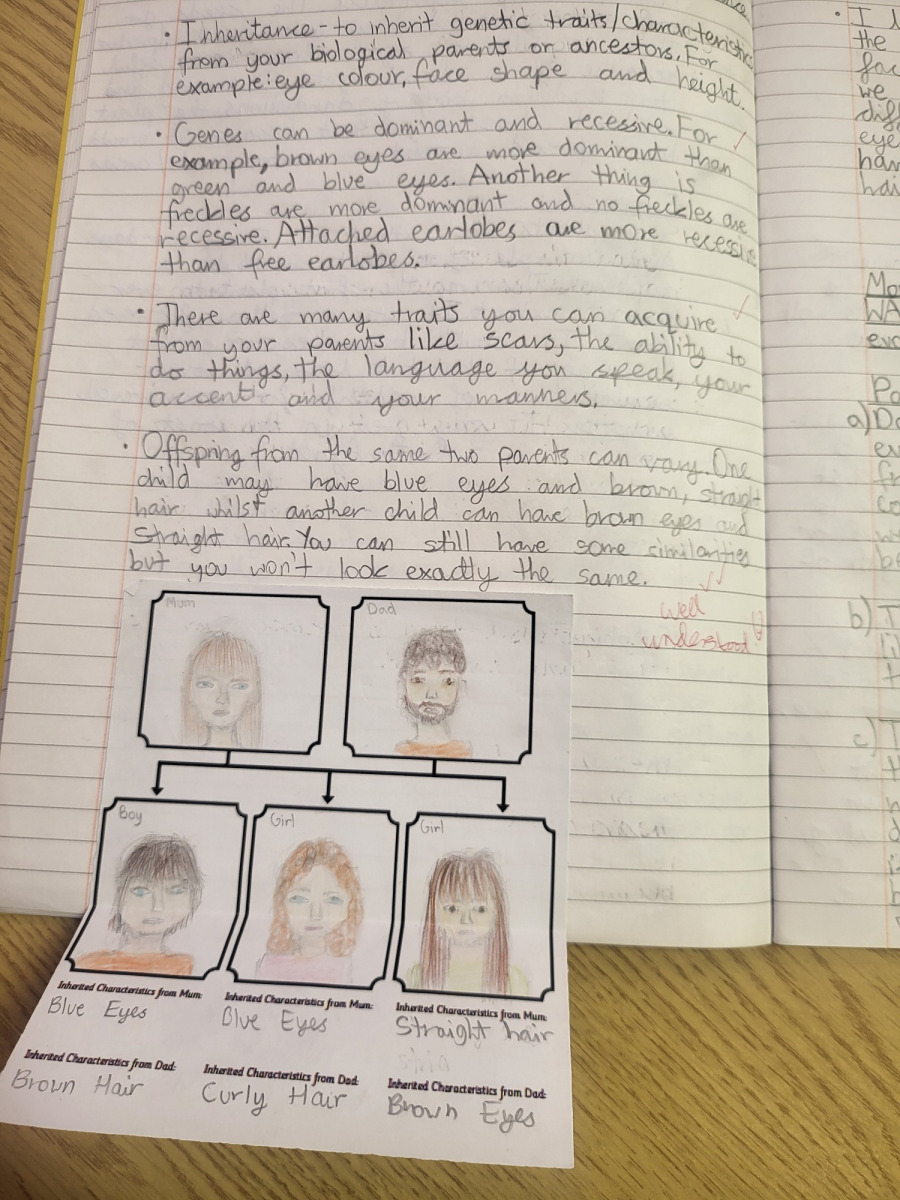 • Inheritance - to inherit genetic traits/characteristics
from your biological parents or ancestors. For
example: eye colour, face shape and height.
• Genes can be dominant and recessive. For
example, brown eyes are more dominant than
green and blue eyes. Another thing is
freckles are more dominant and no freckles are
recessive. Attached earlobes are more recessive
than free earlobes.
• There are many traits you can acquire
from your parents like scars, the ability to
do things, the language you speak, your
accent and your manners.
• Offspring from the same two parents can vary. One
child may have blue eyes and brown, straight
hair whilst another child can have brown eyes and
straight hair. You can still have some similarities
but you won't look exactly the same.
well
understood
Mum
Dad
Boy
Girl
Girl
Inherited Characteristics from Mum:
Blue Eyes
Inherited Characteristics from Dad:
Brown Hair
Inherited Characteristics from Mum:
Blue Eyes
Inherited Characteristics from Dad:
Curly Hair
Inherited Characteristics from Mum:
Straight hair
Inherited Characteristics from Dad:
Brown Eyes
• I
the
we
eye
a)
b)
c)